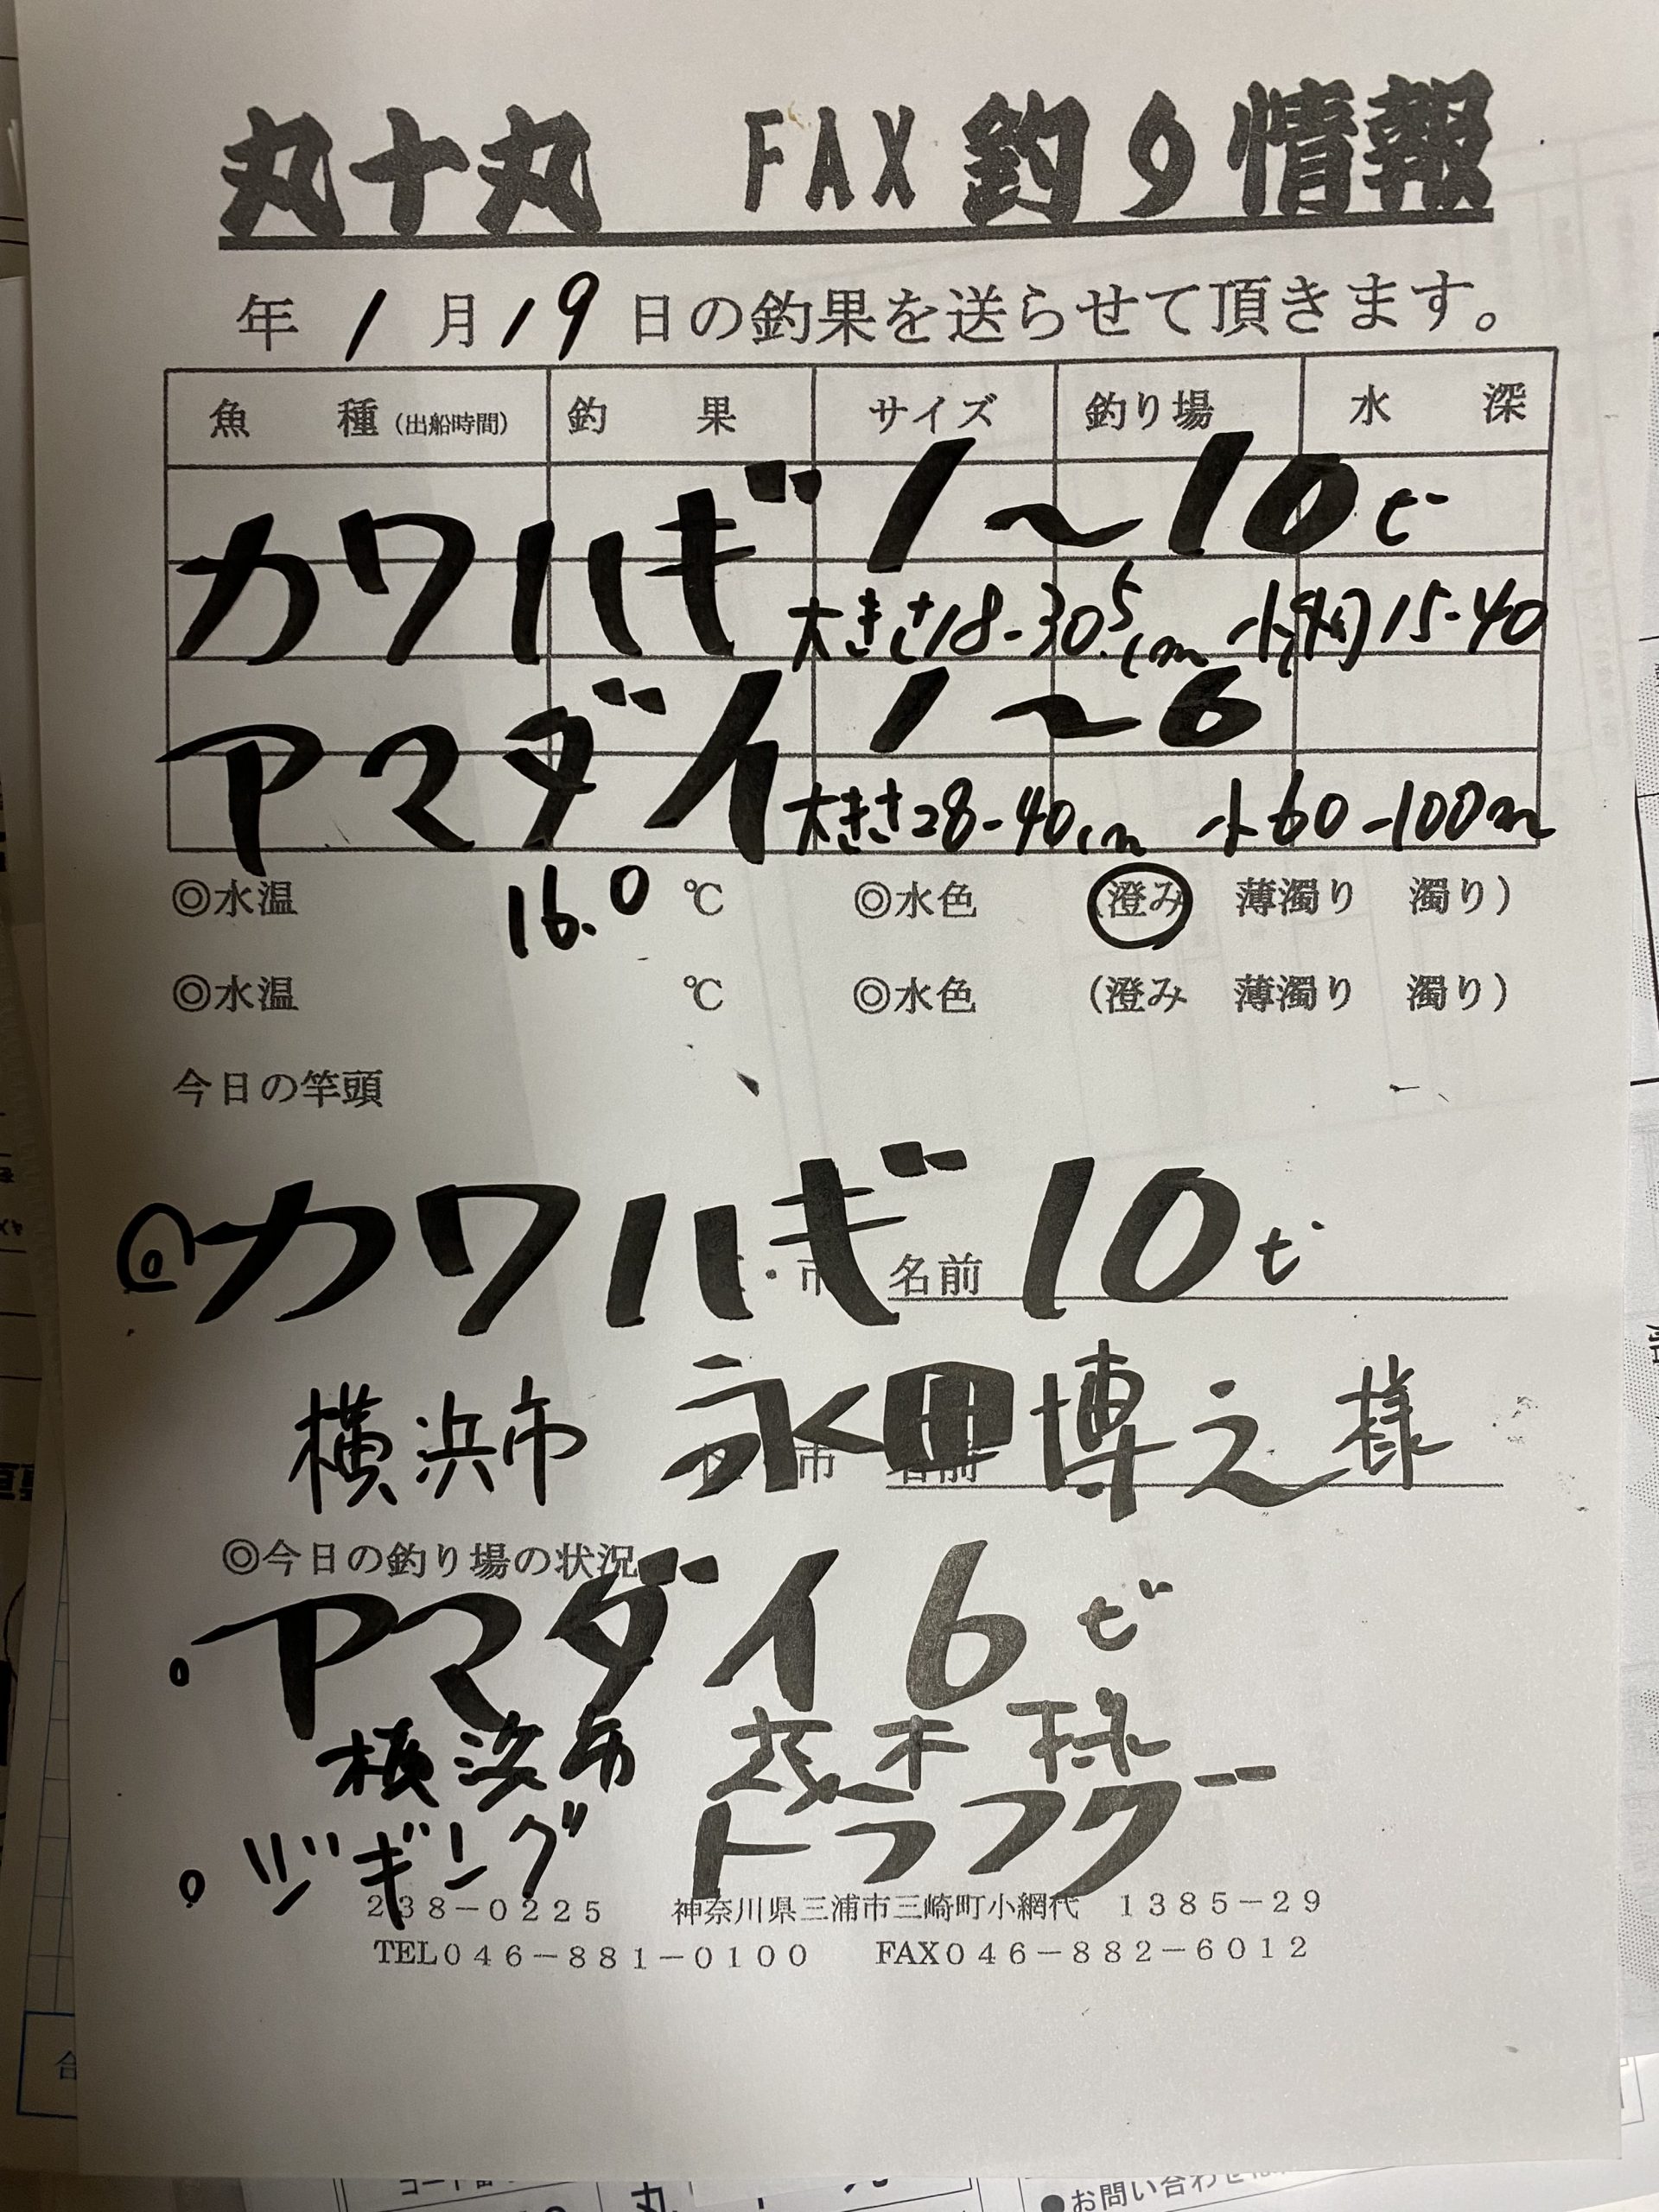 丸十丸 FAX釣り情報
年 1月19日の釣果を送らせて頂きます。
魚 種(出船時間) 釣 果 サイズ 釣り場 水 深
カワハギ 1〜10ピ
大きさ18-30.5cm 15-40
アマダイ 1〜6
大きさ28-40cm 60-100m
◎水温 16.0 ℃ ◎水色 (澄み 薄濁り 濁り)
◎水温 ℃ ◎水色 (澄み 薄濁り 濁り)
今日の竿頭
カワハギ 10ピ
・市 名前
横浜市 永田博之様
市 名前
◎今日の釣り場の状況
アマダイ 6ピ
横浜市 茂木
ジギング トラフグ
238-0225 神奈川県三浦市三崎町小網代 1385-29
TEL046-881-0100 FAX046-882-6012
●お問い合わせ